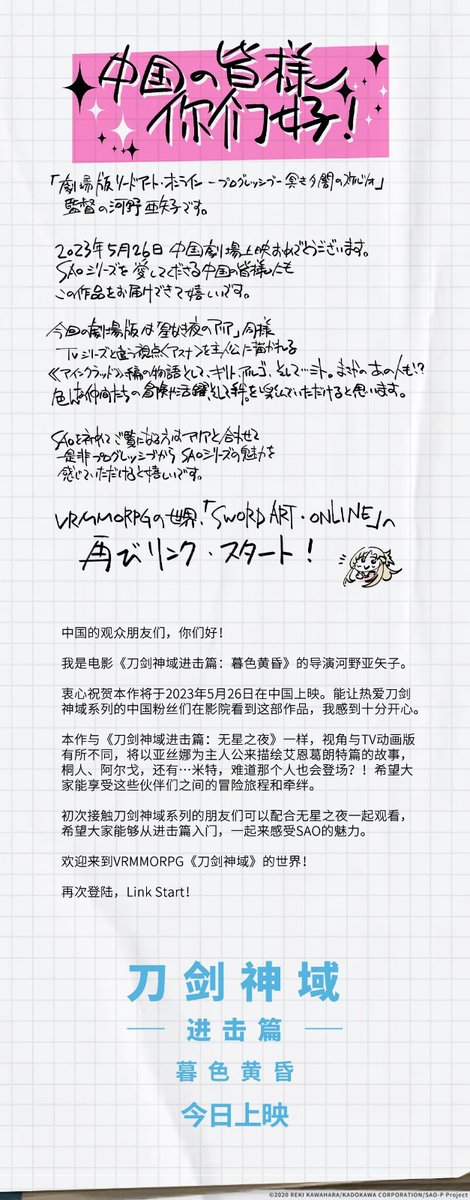 中国の皆様
你们好!
「劇場版ソードアート・オンライン -プログレッシブ- 冥き夕闇のスケルツォ」
監督の河野亜矢子です。
2023年5月26日 中国劇場上映おめでとうございます。
SAOシリーズを愛してくださる中国の皆様にも
この作品をお届けできて嬉しいです。
今回の劇場版は「星なき夜のアリア」同様
TVシリーズと違う視点《アスナ》を主人公に描かれる
《アインクラッド》編の物語として、キリト、アルゴ、そして…ミト。まさかのあの人も!?
色んな仲間たちの冒険に活躍として絆を楽しんでいただけると思います。
SAOを初めてご覧になる方はアリアと合わせて
是非プログレッシブからSAOシリーズの魅力を
感じていただけると嬉しいです。
VRMMORPGの世界、「SWORD ART・ONLINE」へ
再びリンク・スタート!
中国的观众朋友们，你们好！
我是电影《刀剑神域进击篇：暮色黄昏》的导演河野亚矢子。
衷心祝贺本作将于2023年5月26日在中国上映。能让热爱刀剑
神域系列的中国粉丝们在影院看到这部作品，我感到十分开心。
本作与《刀剑神域进击篇：无星之夜》一样，视角与TV动画版
有所不同，将以亚丝娜为主人公来描绘艾恩葛朗特篇的故事，
桐人、阿尔戈，还有…米特，难道那个人也会登场？！希望大
家能享受这些伙伴们之间的冒险旅程和牵绊。
初次接触刀剑神域系列的朋友们可以配合无星之夜一起观看，
希望大家能够从进击篇入门，一起来感受SAO的魅力。
欢迎来到VRMMORPG《刀剑神域》的世界！
再次登陆，Link Start！
刀剑神域
进击篇
暮色黄昏
今日上映
©2020 REKI KAWAHARA/KADOKAWA CORPORATION/SAO-P Project